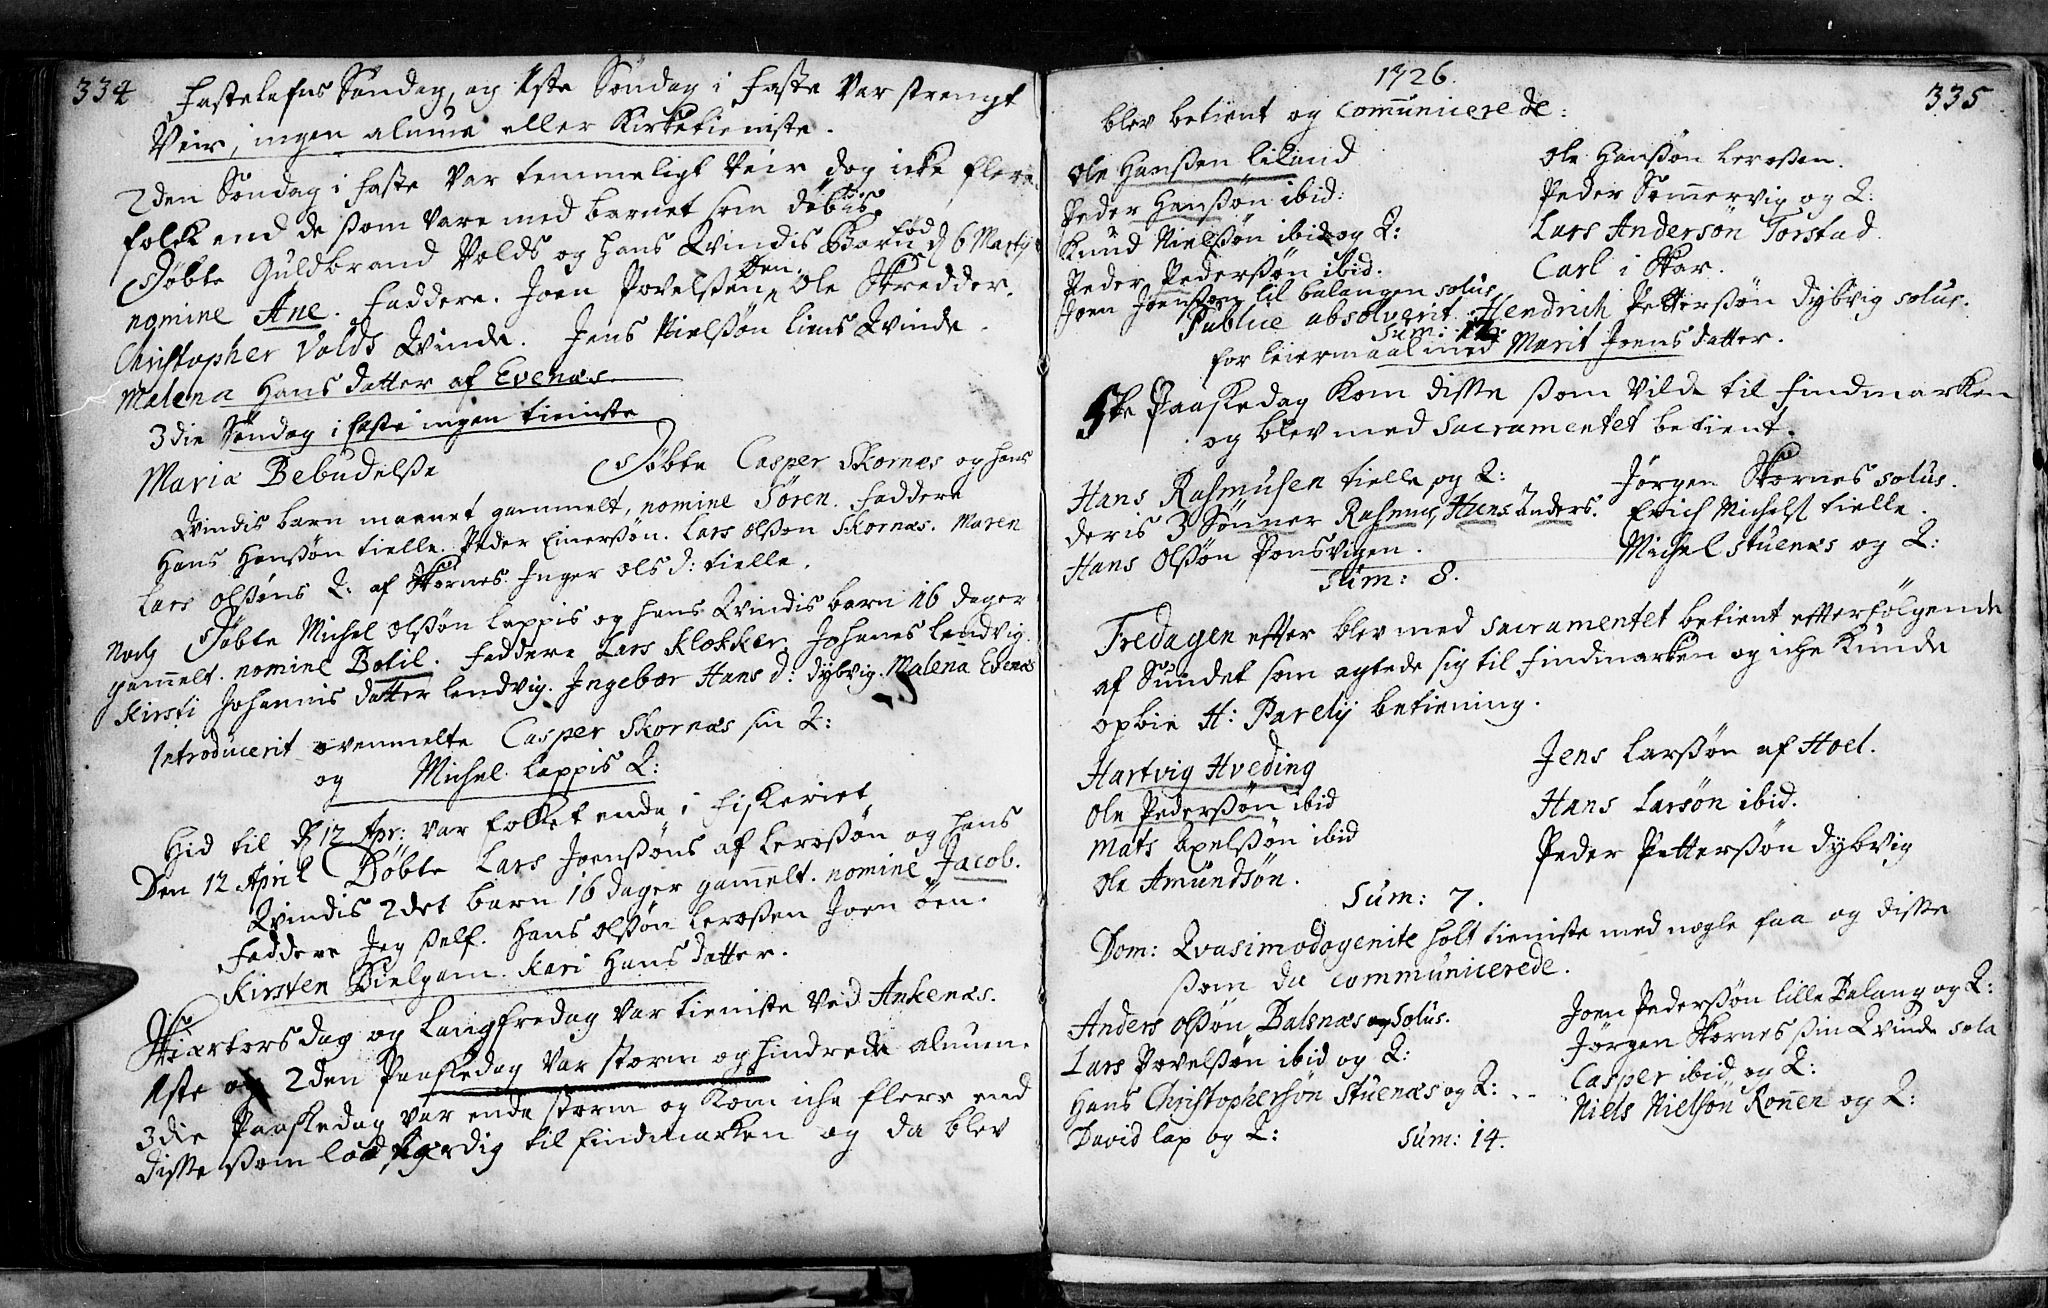 334
Fastelafns Søndag, og 1ste Søndag i Faste var strengt
Veir, ingen alume eller Kirketieniste.
2den Søndag i Faste var temmeligt Veir dog icke flere
folck end de som vare med barnet som døbtis
Døbte Guldbrand Volds og hans Qvindis Barn fød d 6 Martij
nomine Ane. Faddere. Joen Povelssen, Ole Skredder.
Christopher Volds Qvinde. Jens Nielssøn liens Qvinde.
Malena Hans datter af Evenæs.
3die Søndag i Faste ingen tieniste
Maria Bebudelsse Døbte Casper Skornæs og hans
Qvindis barn maanet gammelt, nomine Søren. Faddere
Hans Hanssøn tielle. Peder Einerssøn. Lars Olssen Skornæs. Maren
Lars Olssøns Q: af Skornes. Inger Ols d: tielle.
Noch Døbte Michel Olssøn Lappis og hans Qvindis barn 16 dager
gam̄elt. nomine Botil. Faddere Lars Klokker, Johanes Lendvig.
Kirsti Johannis datter Lendvig. Ingebor Hans d: dybvig. Malena Evenæs
Introducerit ovenmelte Casper Skornæs sin Q:
og Michel Lappis Q:
Hid til d 12 Apr: var folket enda i Fiskeriet
Den 12 April Døbte Lars Joenssøns af Lerossøn og hans
Qvindis 2det barn 16 dager gam̄elt. nomine Jacob.
Faddere Jeg self. Hans Olssøn Lerossen Joen öen.
Kirsten Bielgam. Kari Hans datter.
Skiærtorsdag og Langfredag var tieniste ved Ankenæs.
1ste og 2den Paaskedag var storm og hindrede aluuen.
3die Paaskedag var enda storm og kom icke flere end
disse som laae færdig til Findmarken og da blev
1726.
335
blev betient og com̄unicerede:
Ole Hanssen Liland
Peder Hanssøn ibid:
Knud Nielssøn ibid og Q:
Peder Pederssøn ibid.
Joen Joenssøn lil balangen solus.
Ole Hanssøn Lerossen.
Peder Som̄ervig og Q:
Lars Andersøn Torstad.
Carl i Skar.
Publice absolverit Hendrich Petterssøn dybvig solus.
Sum: 12
for leiermaal med Marit Joens datter.
3die Paaskedag kom disse som vilde til Findmarken
og blev med Sacramentet betient.
Hans Rasmusen tielle og Q:
deris 3 Sønner Rasmus, Hans Anders.
Hans Olssøn Ponsvigen.
Jørgen Skornes solus.
Erich Michels tielle.
Michel Stuenæs og Q:
Sum: 8.
Fredagen efter blev med Sacramentet betient efterfølgende
af Sundet som agtede sig til Findmarken og iche kunde
opbie H: Parelij betiening.
Hartvig Hveding
Ole Pederssøn ibid
Mats Axelssøn ibid
Ole Amundsøn.
Jens Larssøn af Hoel.
Hans Larsøn ibid.
Peder Petterssøn dybvig
Sum: 7.
Dom: Qvasimodogenite holt tieniste med nogle faa og disse
som da communicerede.
Anders Olssøn Balsnæs solus.
Lars Povelssøn ibid og Q:
Hans Christophersøn Stuenæs og Q:
David lap og Q:
Joen Pederssøn lille Balang og Q:
Jørgen Skornes sin Qvinde sola
Casper ibid og Q:
Niels Nielsøn Ron̄en og Q:
Sum: 14.